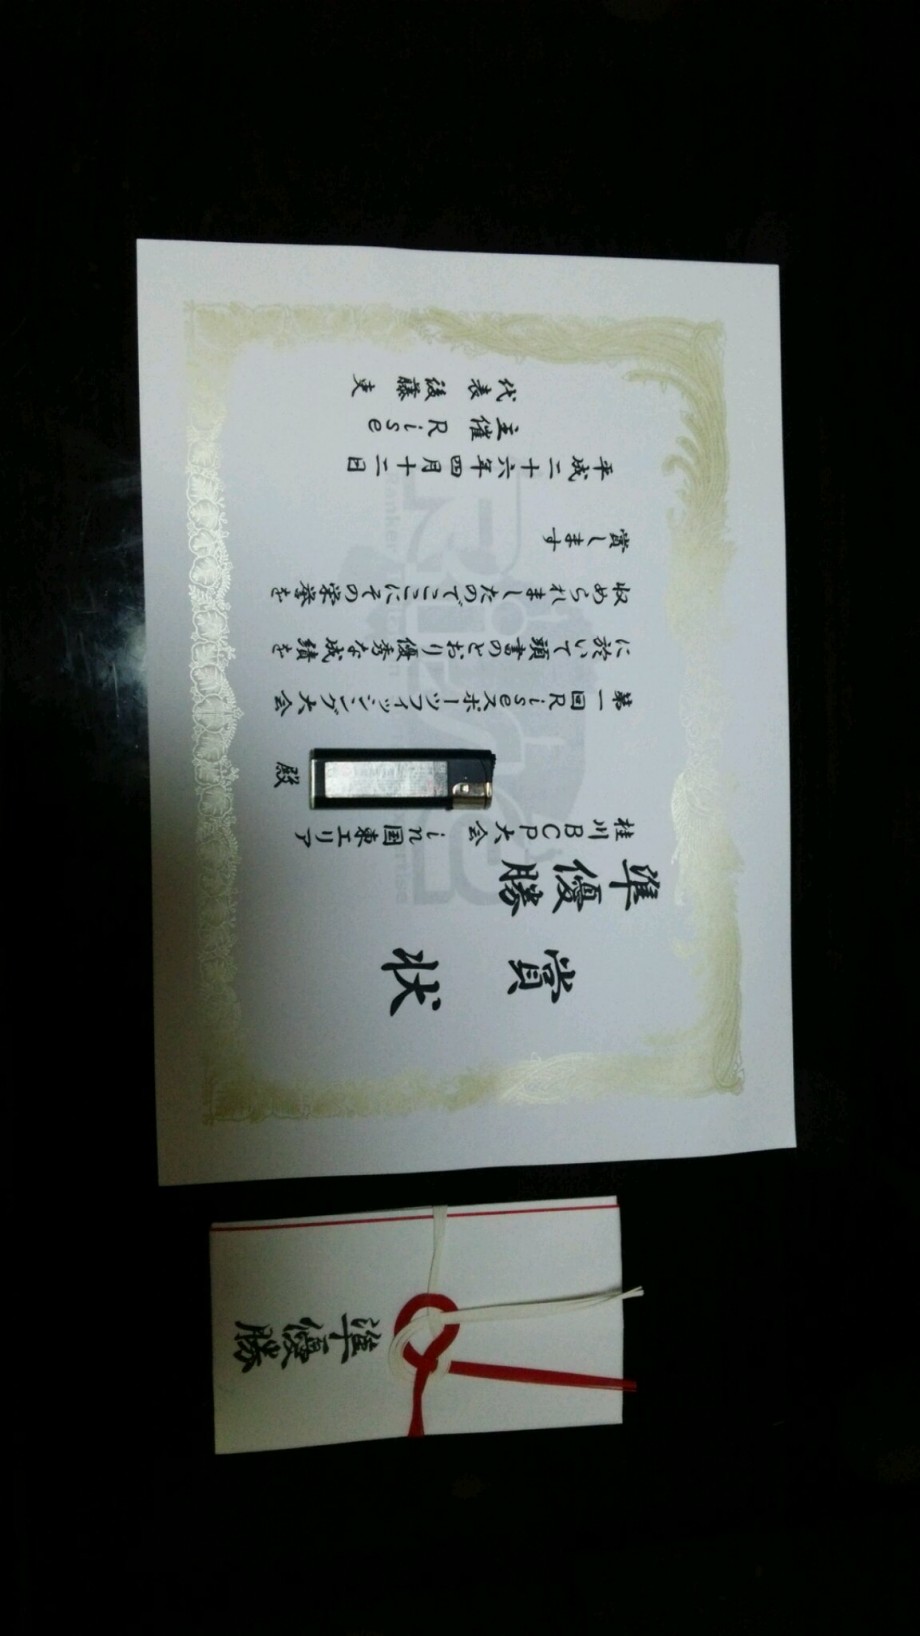 賞状
準優勝
桂川BCP大会 in国東エリア
殿
第一回Riseスポーツフィッシング大会
に於いて頭書のとおり優秀な成績を
収められましたのでここにその栄誉を
賞します
平成二十六年四月十二日
主催 Rise
代表 後藤 吏
準優勝